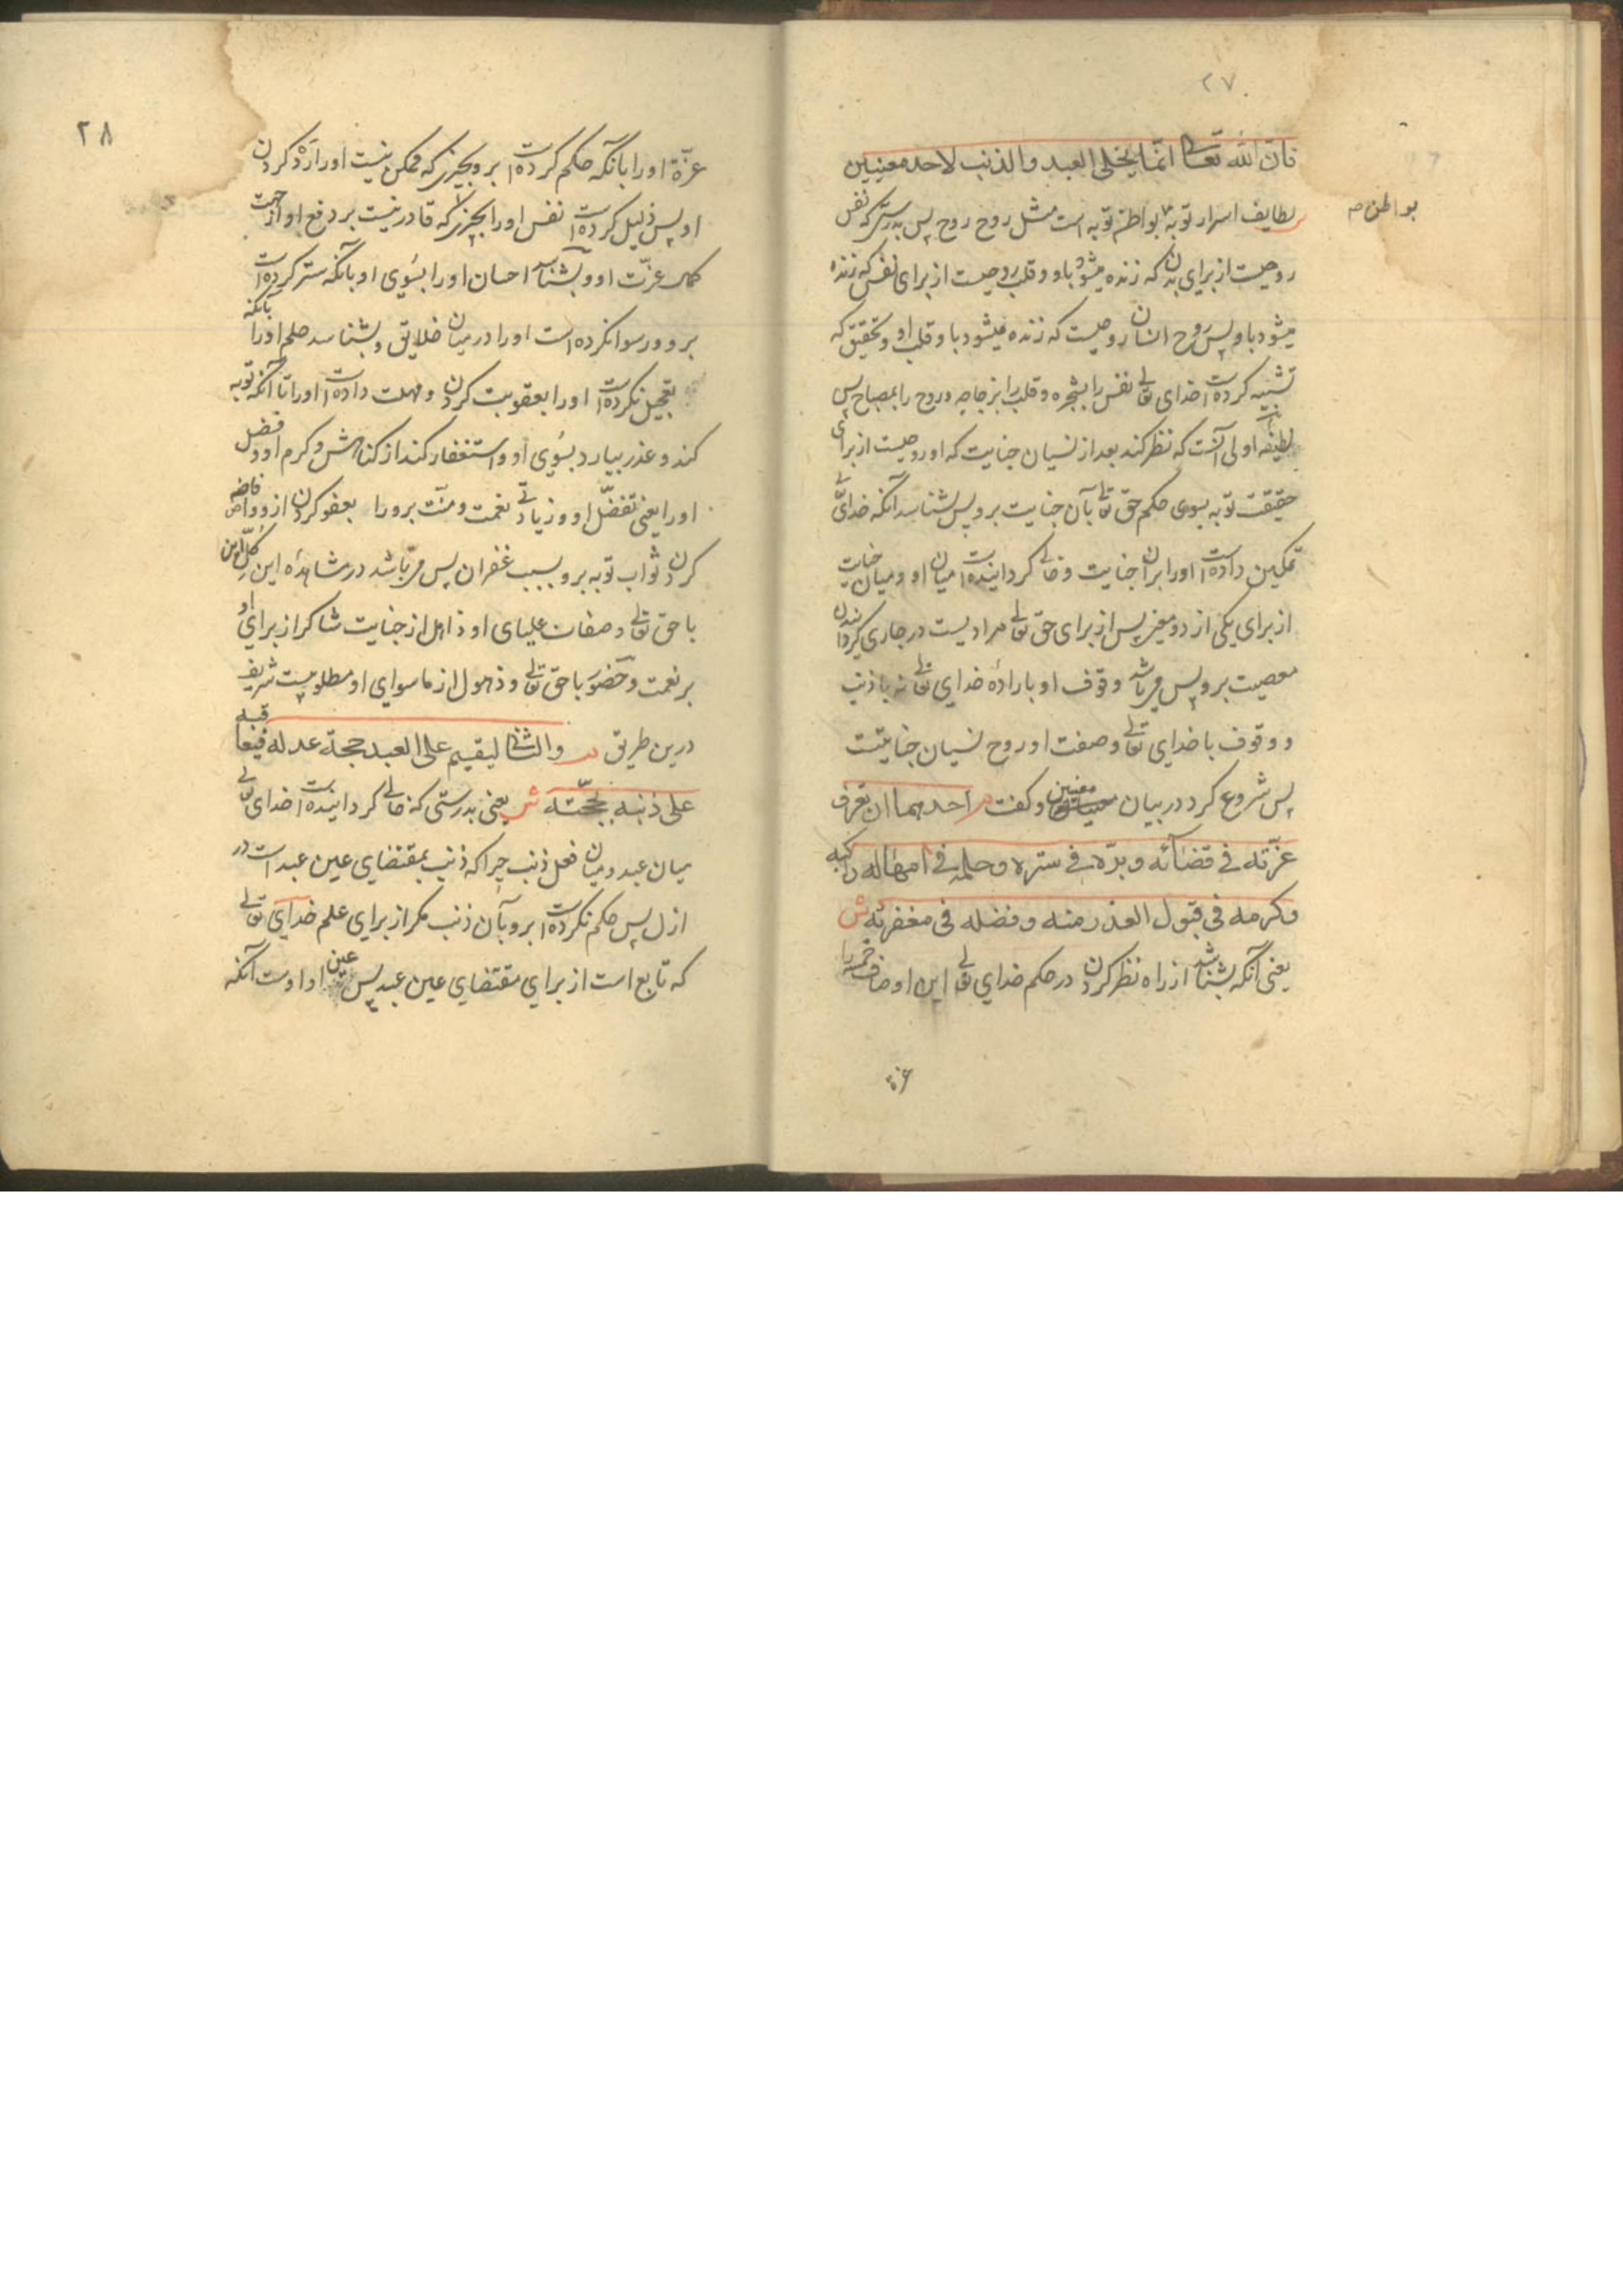 ۲۷
فان الله تعالی انما یخلی العبد والذنب لاحد معنیین
بواطن م
لطایف اسرار توبه بواطن توبه است مثل روح روح پس بدرستی که نفس
روحیست از برای بدن که زنده میشود باو و قلب روحیست از برای نفس که زنده
میشود باو پس روح انسان روحیست که زنده میشود باو قلب او و تحقیق که
تشبیه کرده است خدای تعالی نفس را بشجره و قلب را بزجاجه و روح را بمصباح پس
لطیفه اولی آنست که نظر کند بعد از نسیان جنایت که او روحیست از برای
حقیقت توبه بسوی حکم حق تعالی بآن جنایت برو پس بشناسد آنکه خدای تعالی
تمکین داده است او را بران جنایت و خالی گردانیده است میان او و میان جنایت
از برای یکی از دو معنی پس از برای حق تعالی مرادیست در جاری گردانیدن
معصیت برو پس می باشد وقوف او باراده خدای تعالی نه با ذنب
و وقوف با خدای تعالی وصفت او روح نسیان جنایتست
پس شروع کرد در بیان معنیین و گفت م احدهما ان تعرف
عزته فی قضائه وبره فی ستره وحلمه فی امهال راکبه
وکرمه فی قبول العذر منه وفضله فی مغفرته ش
یعنی آنکه بشناسد از راه نظر کردن در حکم خدای تعالی این اوصاف خمسه را
عزة
۲۸
عزة او را بانکه حکم کرده است برو بچیزی که ممکن نیست او را رد کردن
او پس ذلیل کرده است نفس او را بچیزی که قادر نیست بر دفع او از جهت
کمال عزت او و بشناسد احسان او را بسوی او بانکه ستر کرده است
برو و رسوا نکرده است او را در میان خلایق و بشناسد حلم او را بانکه
تعجیل نکرده است او را بعقوبت کردن و مهلت داده است او را تا آنکه توبه
کند و عذر بیارد بسوی او و استغفار کند از گناهش و کرم او و فضل
او را یعنی تفضل او و زیادتی نعمت و منت برو را بعفو کردن ازو و افاضه
کردن ثواب توبه برو بسبب غفران پس می باشد در مشاهده این کل این
با حق تعالی و صفات علیای او ذاهل از جنایت شاکر از برای او
بر نعمت و حضور با حق تعالی و ذهول از ماسوای او مطلوبیست شریف
درین طریق م والثانی لیقیم علی العبد حجة عدله فیعاقبه
علی ذنبه بحجته ش یعنی بدرستی که خالی گردانیده است خدای تعالی
میان عبد و میان فعل ذنب چرا که ذنب بمقتضای عین عبد است در
ازل پس حکم نکرده است برو بآن ذنب مگر از برای علم خدای تعالی
که تابع است از برای مقتضای عین عبد پس عین او اوست آنکه